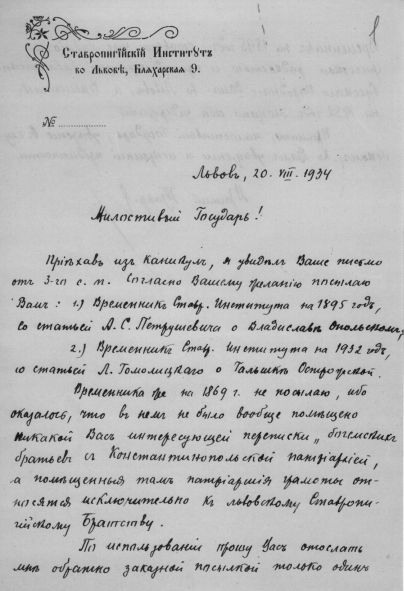 Ставропигійскій Институтъ
во Львовѣ, Бляхарская 9.
1
№
Львовъ, 20. VIII. 1934
Милостивый Государь!
Пріѣхавъ изъ каникулъ, я увидѣлъ Ваше письмо
отъ 3-го с. м. Согласно Вашему желанію посылаю
Вамъ: 1.) Временникъ Ставр. Института на 1895 годъ,
со статьей А. С. Петрушевича о Владиславѣ Опольскомъ;
2.) Временникъ Ставр. Института на 1932 годъ,
со статьей Л. Гомолицкаго о Гальшкѣ Острожской.
Временника же на 1869 г. не посылаю, ибо
оказалось, что въ немъ не было вообще помѣщено
никакой Васъ интересующей переписки „богемскихъ
братьевъ съ Константинопольской патріархіей,
а помѣщенныя тамъ патріаршія грамоты от-
носятся исключительно къ львовскому Ставропи-
гійскому Братству.
По использованіи прошу Васъ отослать
мнѣ обратно заказной посылкой только одинъ